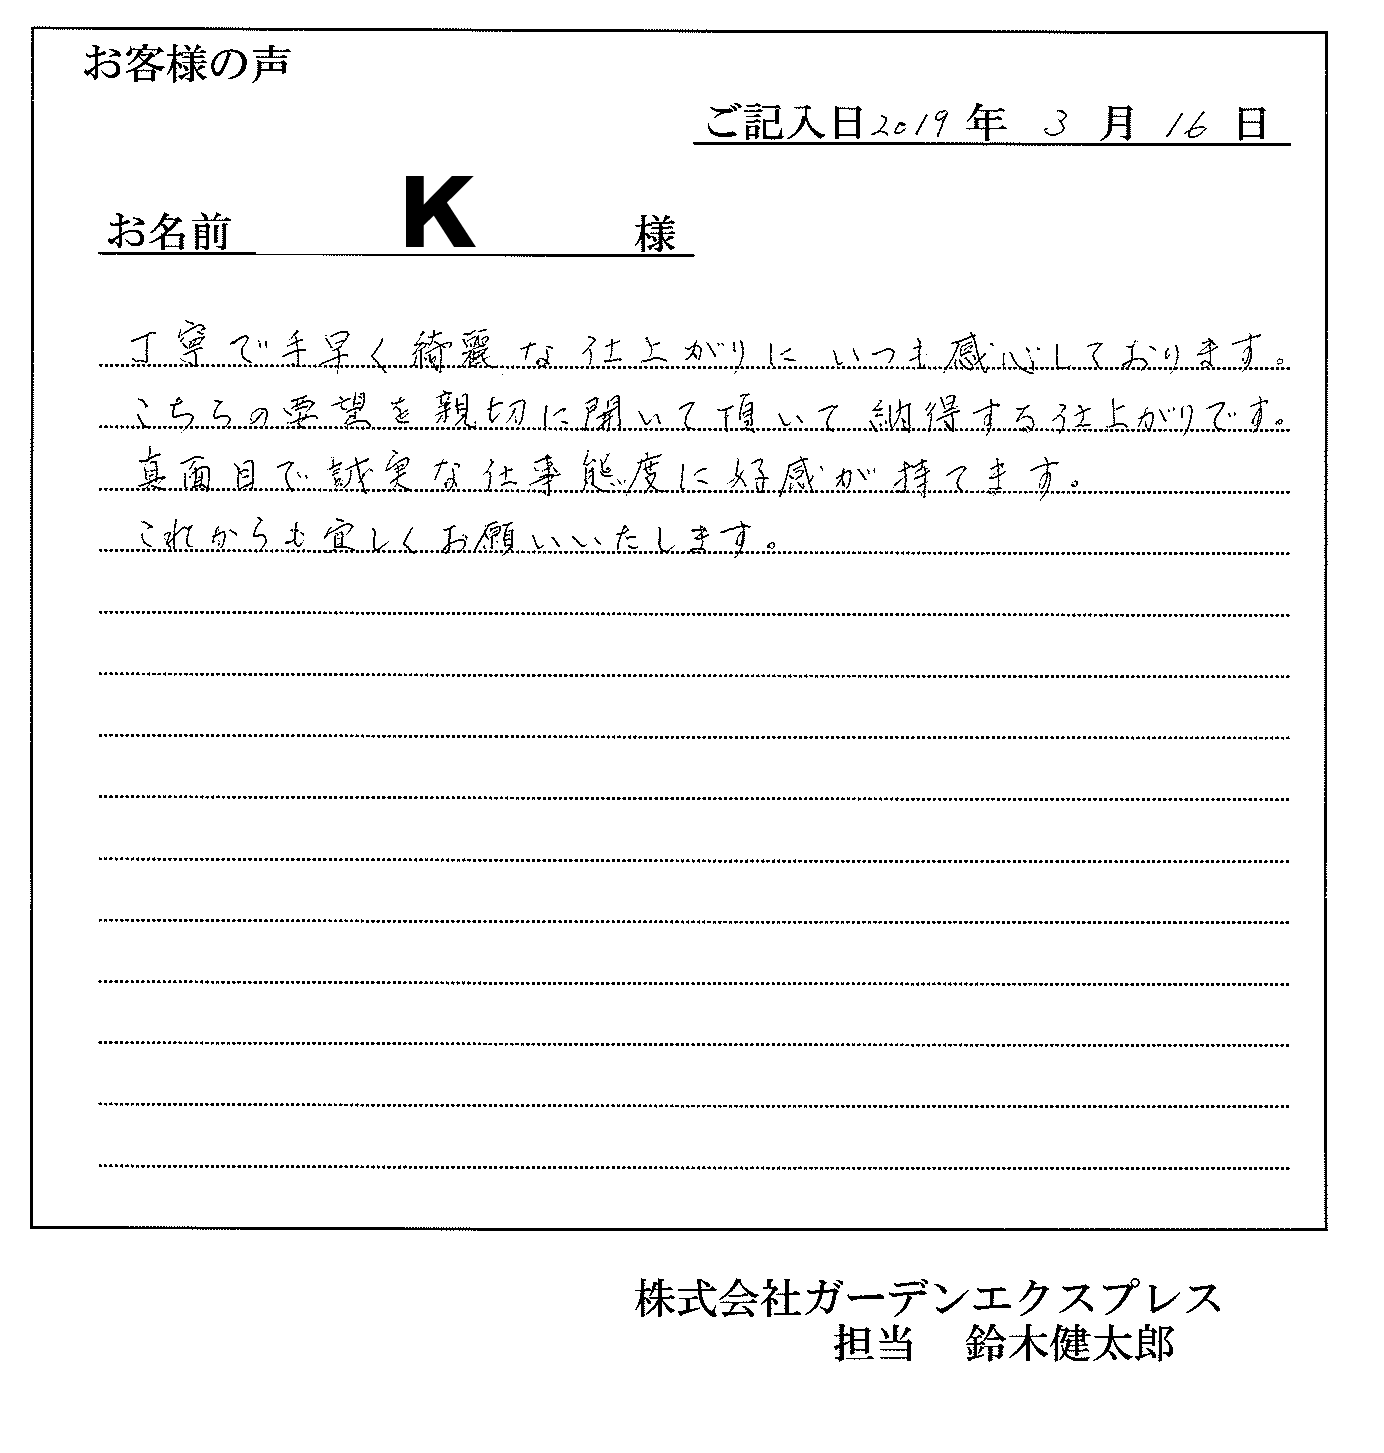 お客様の声
ご記入日2019年 3月 16日
お名前 K 様
丁寧で手早く綺麗な仕上がりにいつも感心しております。
こちらの要望を親切に聞いて頂いて納得する仕上がりです。
真面目で誠実な仕事態度に好感が持てます。
これからも宜しくお願いいたします。
株式会社ガーデンエクスプレス
担当 鈴木健太郎